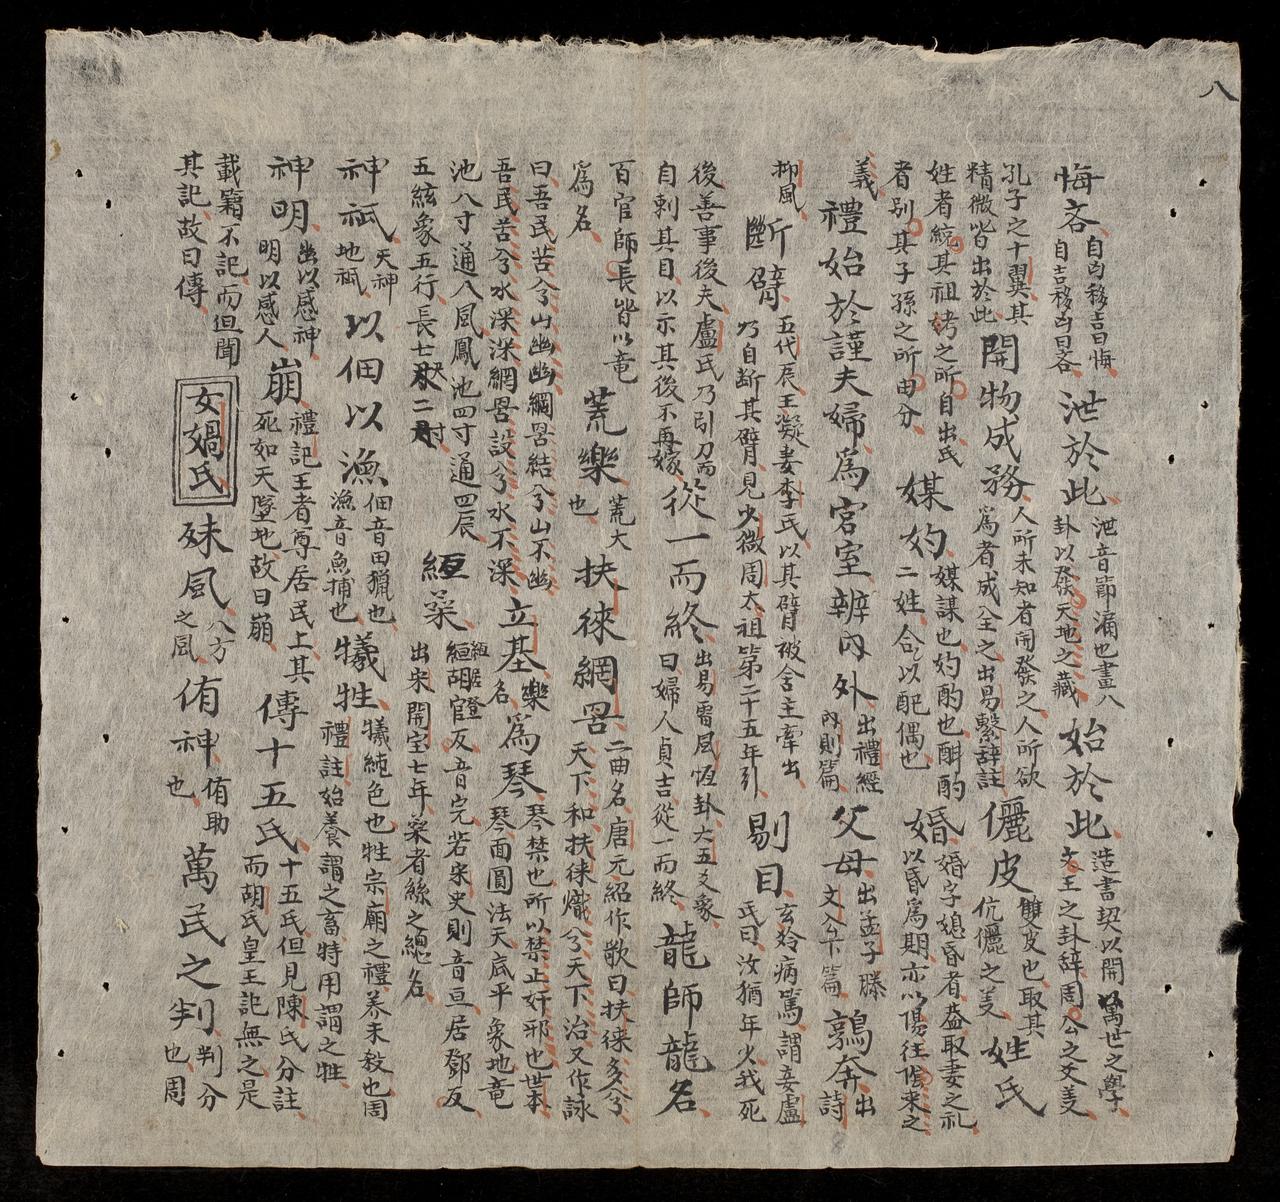 八
悔吝自凶移吉曰悔自吉移凶曰吝泄於此泄音節漏也畫八卦以發天地之藏始於此造書契以開萬世之學文王之卦辞周公之爻彖
孔子之十翼其精微皆出於此開物成務人所未知者開發之人所欲爲者成全之出易繫辞註儷皮雙皮也取其伉儷之美姓氏
姓者統其祖考之所自出氏者别其子孫之所由分媒妁媒謀也妁酌也斟酌二姓合以配偶也婚婚字媳昏者盖取妻之礼以昏爲期亦以陽往陰来之
義禮始於謹夫婦爲宮室辨內外出禮經內則篇父母出孟子滕文公下篇鶉奔出詩
鄘風斷臂五代辰王凝妻李氏以其臂被舍主牽出乃自断其臂見少微周太祖第二十五年引剔目玄齡病篤謂妾盧氏曰汝猶年火我死
後善事後夫盧氏乃引刀而自刺其目以示其後不再嫁從一而終出易雷風恆卦大五爻象曰婦人貞吉從一而終龍師龍名
百官師長皆以竜爲名荒樂荒大也扶徠網罟二曲名唐元紹作歌曰扶徠多兮天下和扶徠熾兮天下治又作詠
曰吾民苦兮山幽幽網罟結兮山不幽吾民苦兮水深深網罟設兮水不深立基樂名爲琴琴禁也所以禁止奸邪也世本琴面圓法天底平象地竜
池八寸通八風鳳池四寸通四辰五絃象五行長七尺二寸絙桑絙居登絙胡官反音完若宋史則音亘居鄧反出宋開宝七年桑者絲之總名
神祇天神地祇以佃以漁佃音田獵也漁音魚捕也犠牲犠純色也牲宗廟之禮养未殺也周禮註始養謂之畜特用謂之牲
神明幽以感神明以感人崩禮記王者尊居民上其死如天墜地故曰崩傳十五氏十五氏但見陳氏分註而胡氏皇王記無之是
載籍不記而但聞其記故曰傳女媧氏殊風八方之風侑神侑助也萬民之判判分也周